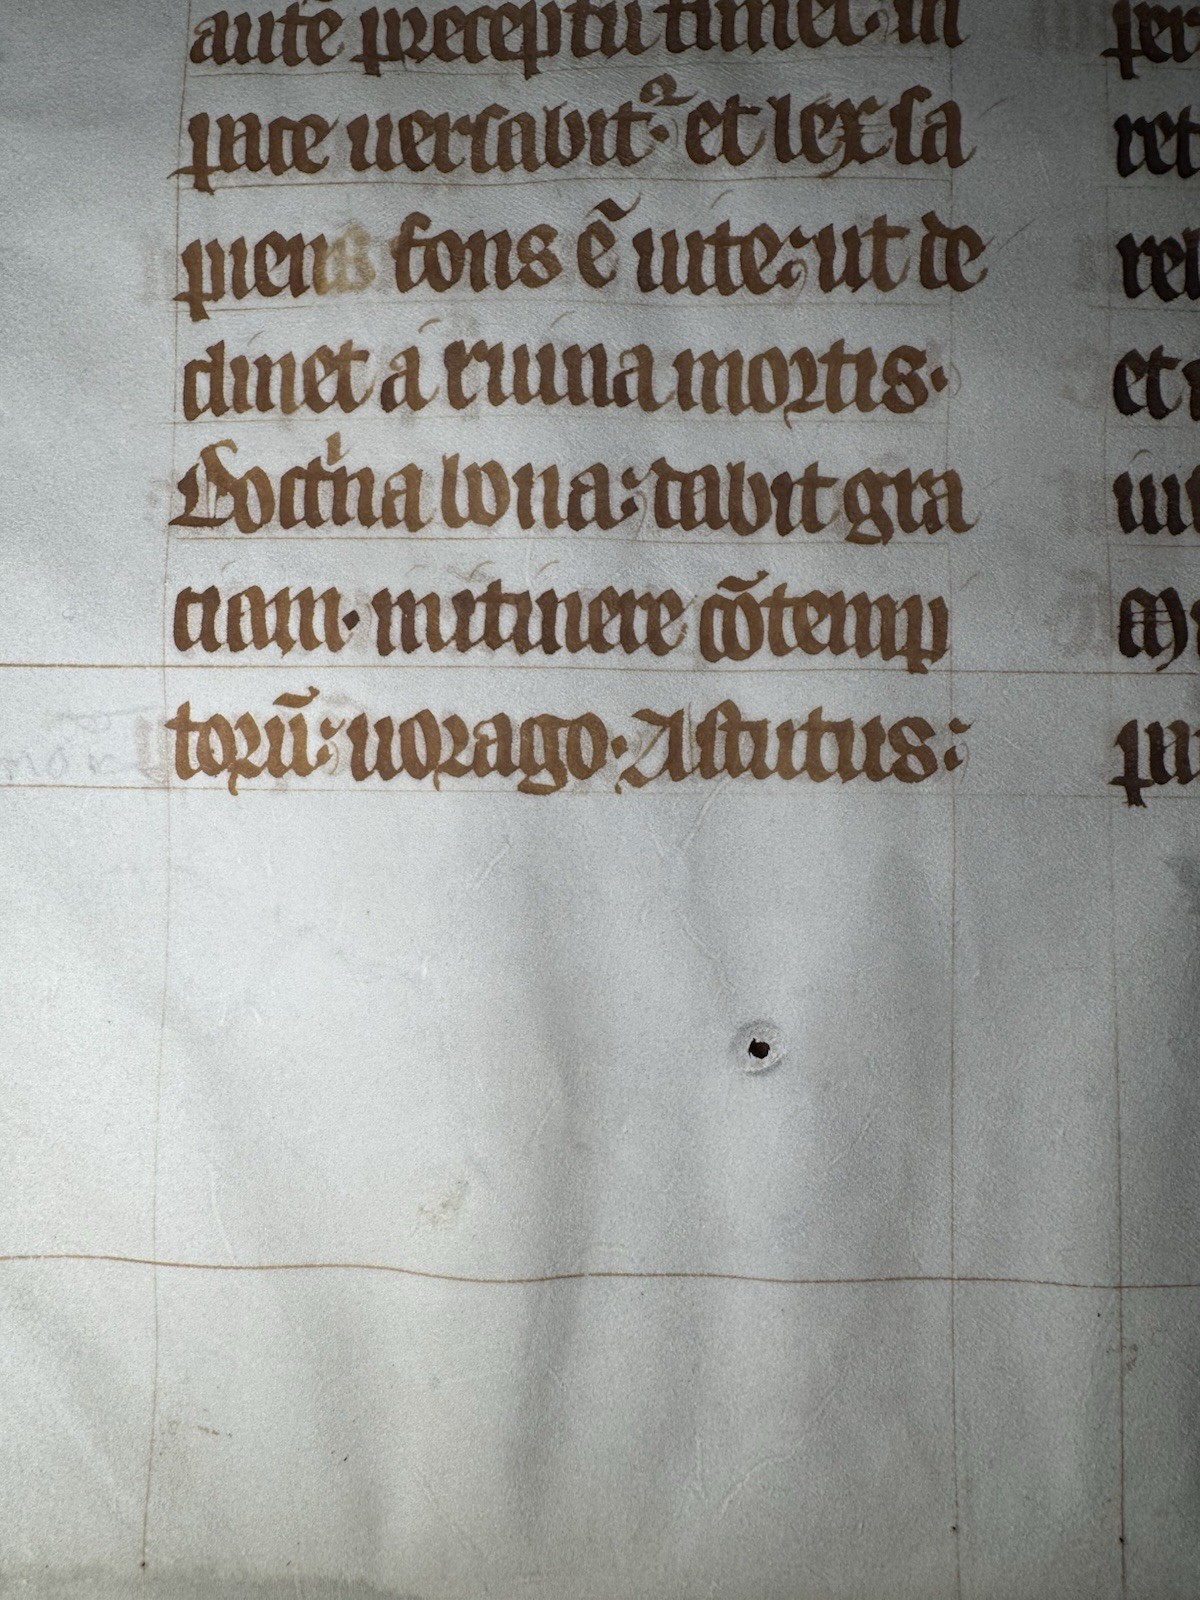 autē preceptū timet· in
pace uersabit᷑· et lex sa
piens fons ē uite: ut de
clinet a ruina mortis·
Doctͥna bona: dabit gra
ciam· in itinere cōtemp
torū: uorago· Astutus:
per
ret
reb
et
M